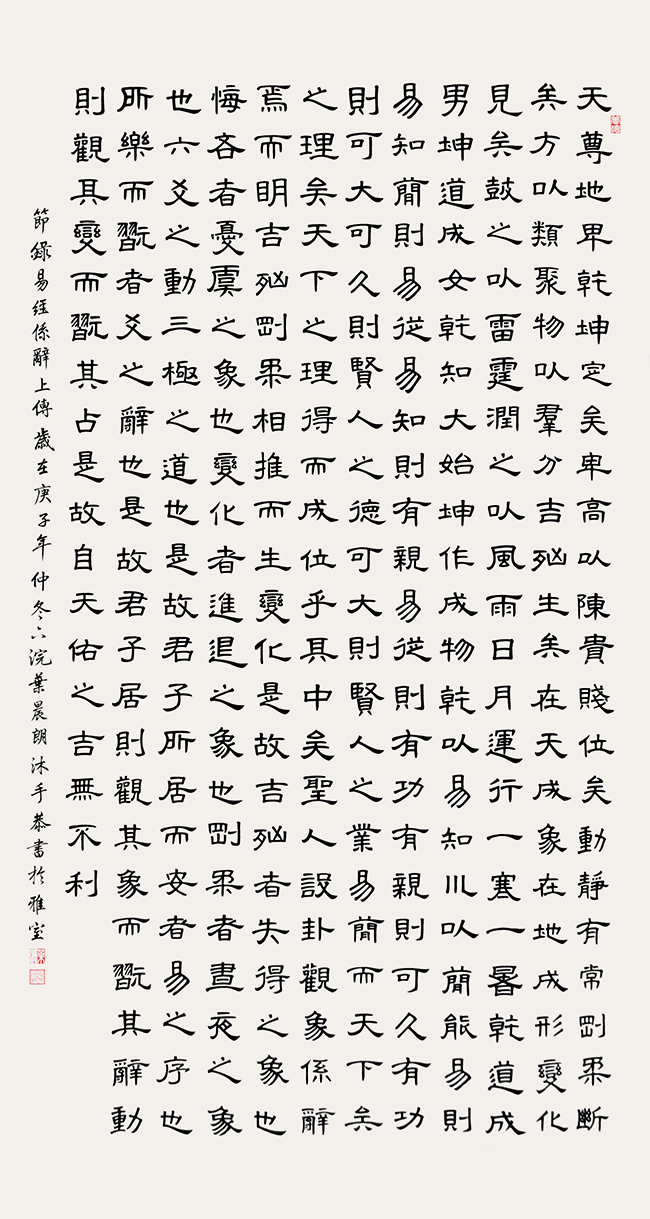 天尊地卑乾坤定矣卑高以陳貴賤位矣動靜有常剛柔斷
矣方以類聚物以羣分吉凶生矣在天成象在地成形變化
見矣鼓之以雷霆潤之以風雨日月運行一寒一暑乾道成
男坤道成女乾知大始坤作成物乾以易知川以簡能易則
易知簡則易從易知則有親易從則有功有親則可久有功
則可大可久則賢人之德可大則賢人之業易簡而天下矣
之理矣天下之理得而成位乎其中矣聖人設卦觀象係辭
焉而明吉凶剛柔相推而生變化是故吉凶者失得之象也
悔吝者憂虞之象也變化者進退之象也剛柔者晝夜之象
也六爻之動三極之道也是故君子所居而安者易之序也
所樂而翫者爻之辭也是故君子居則觀其象而翫其辭動
則觀其變而翫其占是故自天佑之吉無不利
節錄易經係辭上傳歲在庚子年仲冬六浣葉晨朗沐手恭書於雅室